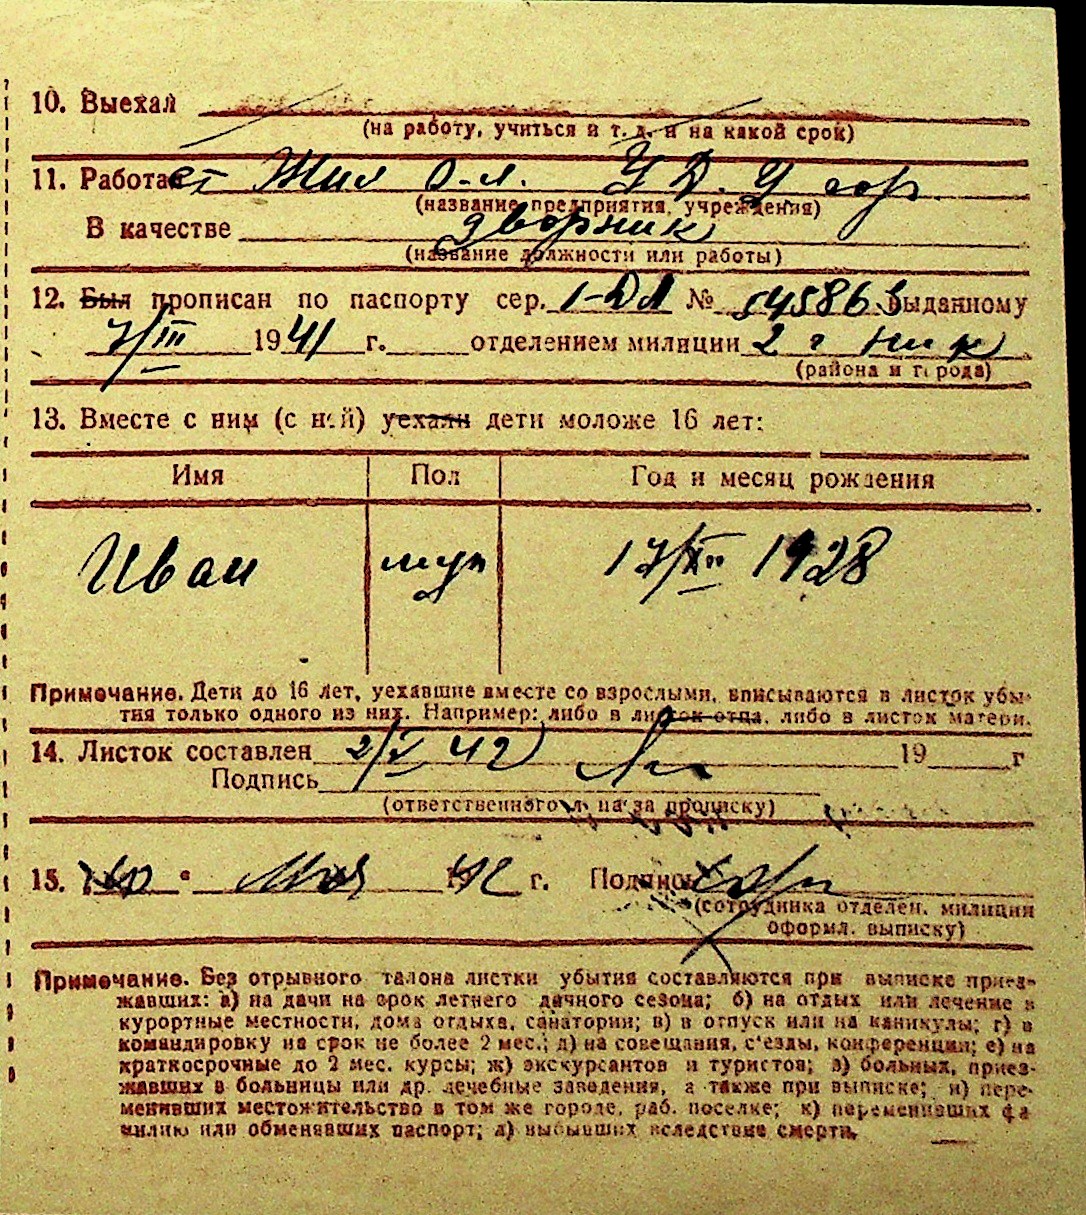 10. Выехал
(на работу, учиться и т. д. и на какой срок)
11. Работает Жил
(название предприятия, учреждения)
В качестве дворник
(название должности или работы)
12. Был прописан по паспорту сер. 1-ДЛ № 545863 выданному
7/III 1941 г. отделением милиции 2 г
(района и города)
13. Вместе с ним (с ней) уехали дети моложе 16 лет:
Имя Пол Год и месяц рождения
Иван муж 17/XII 1928
Примечание. Дети до 16 лет, уехавшие вместе со взрослыми, вписываются в листок убы-
тия только одного из них. Например: либо в листок отца, либо в листок матери.
14. Листок составлен 2/V 42 19 г
Подпись
(ответственного л. на за прописку)
15. " Мая 42 г. Подпись
(сотрудника отделен. милиции
оформл. выписку)
Примечание. Без отрывного талона листки убытия составляются при выписке приез-
жавших: а) на дачи на срок летнего дачного сезона; б) на отдых или лечение в
курортные местности, дома отдыха, санатории; в) в отпуск или на каникулы; г) в
командировку на срок не более 2 мес.; д) на совещания, с'езды, конференции; е) на
краткосрочные до 2 мес. курсы; ж) экскурсантов и туристов; з) больных, приез-
жавших в больницы или др. лечебные заведения, а также при выписке; и) пере-
менивших местожительство в том же городе, раб. поселке; к) переменивших фа
милию или обменявших паспорт; л) выбывших вследствие смерти.